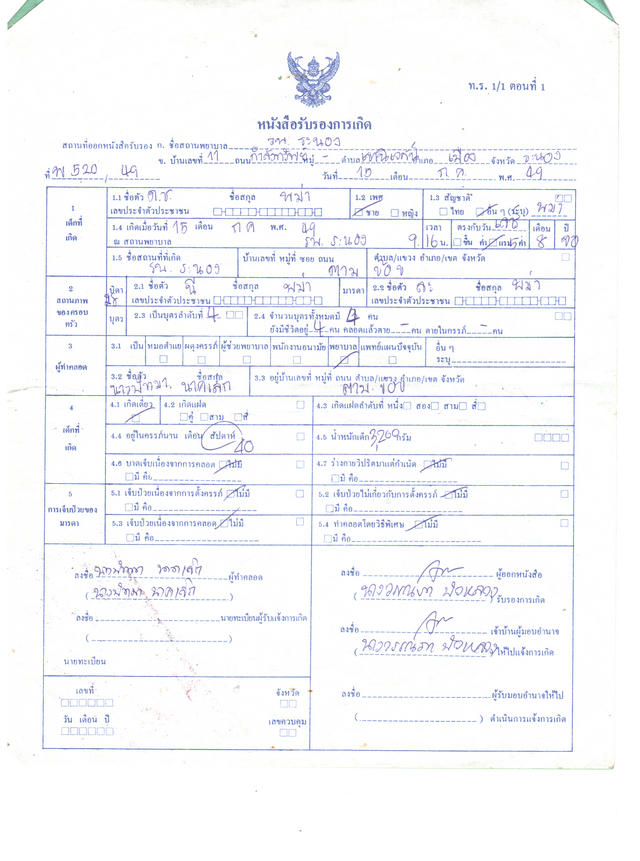 ท.ร. 1/1 ตอนที่ 1
หนังสือรับรองการเกิด
สถานที่ออกหนังสือรับรอง ก. ชื่อสถานพยาบาล รพ. ระนอง
ข. บ้านเลขที่ 11 ถนน กำลังทรัพย์ หมู่ - ตำบล เขานิเวศน์ อำเภอ เมือง จังหวัด ระนอง
ที่ พ 520 / 49 วันที่ 15 เดือน ก ค พ.ศ. 49
1 เด็กที่เกิด
1.1 ชื่อตัว ด.ช. ชื่อสกุล พม่า 1.2 เพศ 1.3 สัญชาติ
เลขประจำตัวประชาชน ชาย หญิง ไทย อื่น ๆ (ระบุ) พม่า
1.4 เกิดเมื่อวันที่ 15 เดือน ก ค พ.ศ. 49 เวลา ตรงกับวัน เดือน ปี
ณ สถานพยาบาล รพ. ระนอง 9.16 น. ขึ้น ค่ำ แรม 5 ค่ำ 8 จอ
1.5 ชื่อสถานที่ที่เกิด บ้านเลขที่ หมู่ที่ ซอย ถนน ตำบล/แขวง อำเภอ/เขต จังหวัด
รพ. ระนอง ตาม ข้อ ข
2 สถานภาพของครอบครัว
บิดา 2.1 ชื่อตัว ชื่อสกุล พม่า มารดา 2.2 ชื่อตัว ชื่อสกุล พม่า
เลขประจำตัวประชาชน เลขประจำตัวประชาชน
บุตร 2.3 เป็นบุตรลำดับที่ 4 2.4 จำนวนบุตรทั้งหมดมี 4 คน
ยังมีชีวิตอยู่ 4 คน คลอดแล้วตาย - คน ตายในครรภ์ - คน
3 ผู้ทำคลอด
3.1 เป็น หมอตำแย ผดุงครรภ์ ผู้ช่วยพยาบาล พนักงานอนามัย พยาบาล แพทย์แผนปัจจุบัน อื่น ๆ ระบุ
3.2 ชื่อตัว ชื่อสกุล 3.3 อยู่บ้านเลขที่ หมู่ที่ ถนน ตำบล/แขวง อำเภอ/เขต จังหวัด
นาคเล็ก ตาม ข้อ ข
4 เด็กที่เกิด
4.1 เกิดเดี่ยว 4.2 เกิดแฝด คู่ สาม สี่ 4.3 เกิดแฝดลำดับที่ หนึ่ง สอง สาม สี่
4.4 อยู่ในครรภ์นาน เดือน สัปดาห์ 40 4.5 น้ำหนักเด็ก 3,209 กรัม
4.6 บาดเจ็บเนื่องจากการคลอด ไม่มี 4.7 ร่างกายวิปริตมาแต่กำเนิด ไม่มี
มี คือ มี คือ
5 การเจ็บป่วยของมารดา
5.1 เจ็บป่วยเนื่องจากการตั้งครรภ์ ไม่มี 5.2 เจ็บป่วยไม่เกี่ยวกับการตั้งครรภ์ ไม่มี
มี คือ มี คือ
5.3 เจ็บป่วยเนื่องจากการคลอด ไม่มี 5.4 ทำคลอดโดยวิธีพิเศษ ไม่มี
มี คือ มี คือ
ลงชื่อ นาคเล็ก ผู้ทำคลอด ลงชื่อ ผู้ออกหนังสือ
( นาคเล็ก ) ( ) รับรองการเกิด
ลงชื่อ นายทะเบียนผู้รับแจ้งการเกิด ลงชื่อ เจ้าบ้านผู้มอบอำนาจ
( ) ( ) ให้ไปแจ้งการเกิด
นายทะเบียน
เลขที่ จังหวัด ลงชื่อ ผู้รับมอบอำนาจให้ไป
วัน เดือน ปี เลขควบคุม ( ) ดำเนินการแจ้งการเกิด